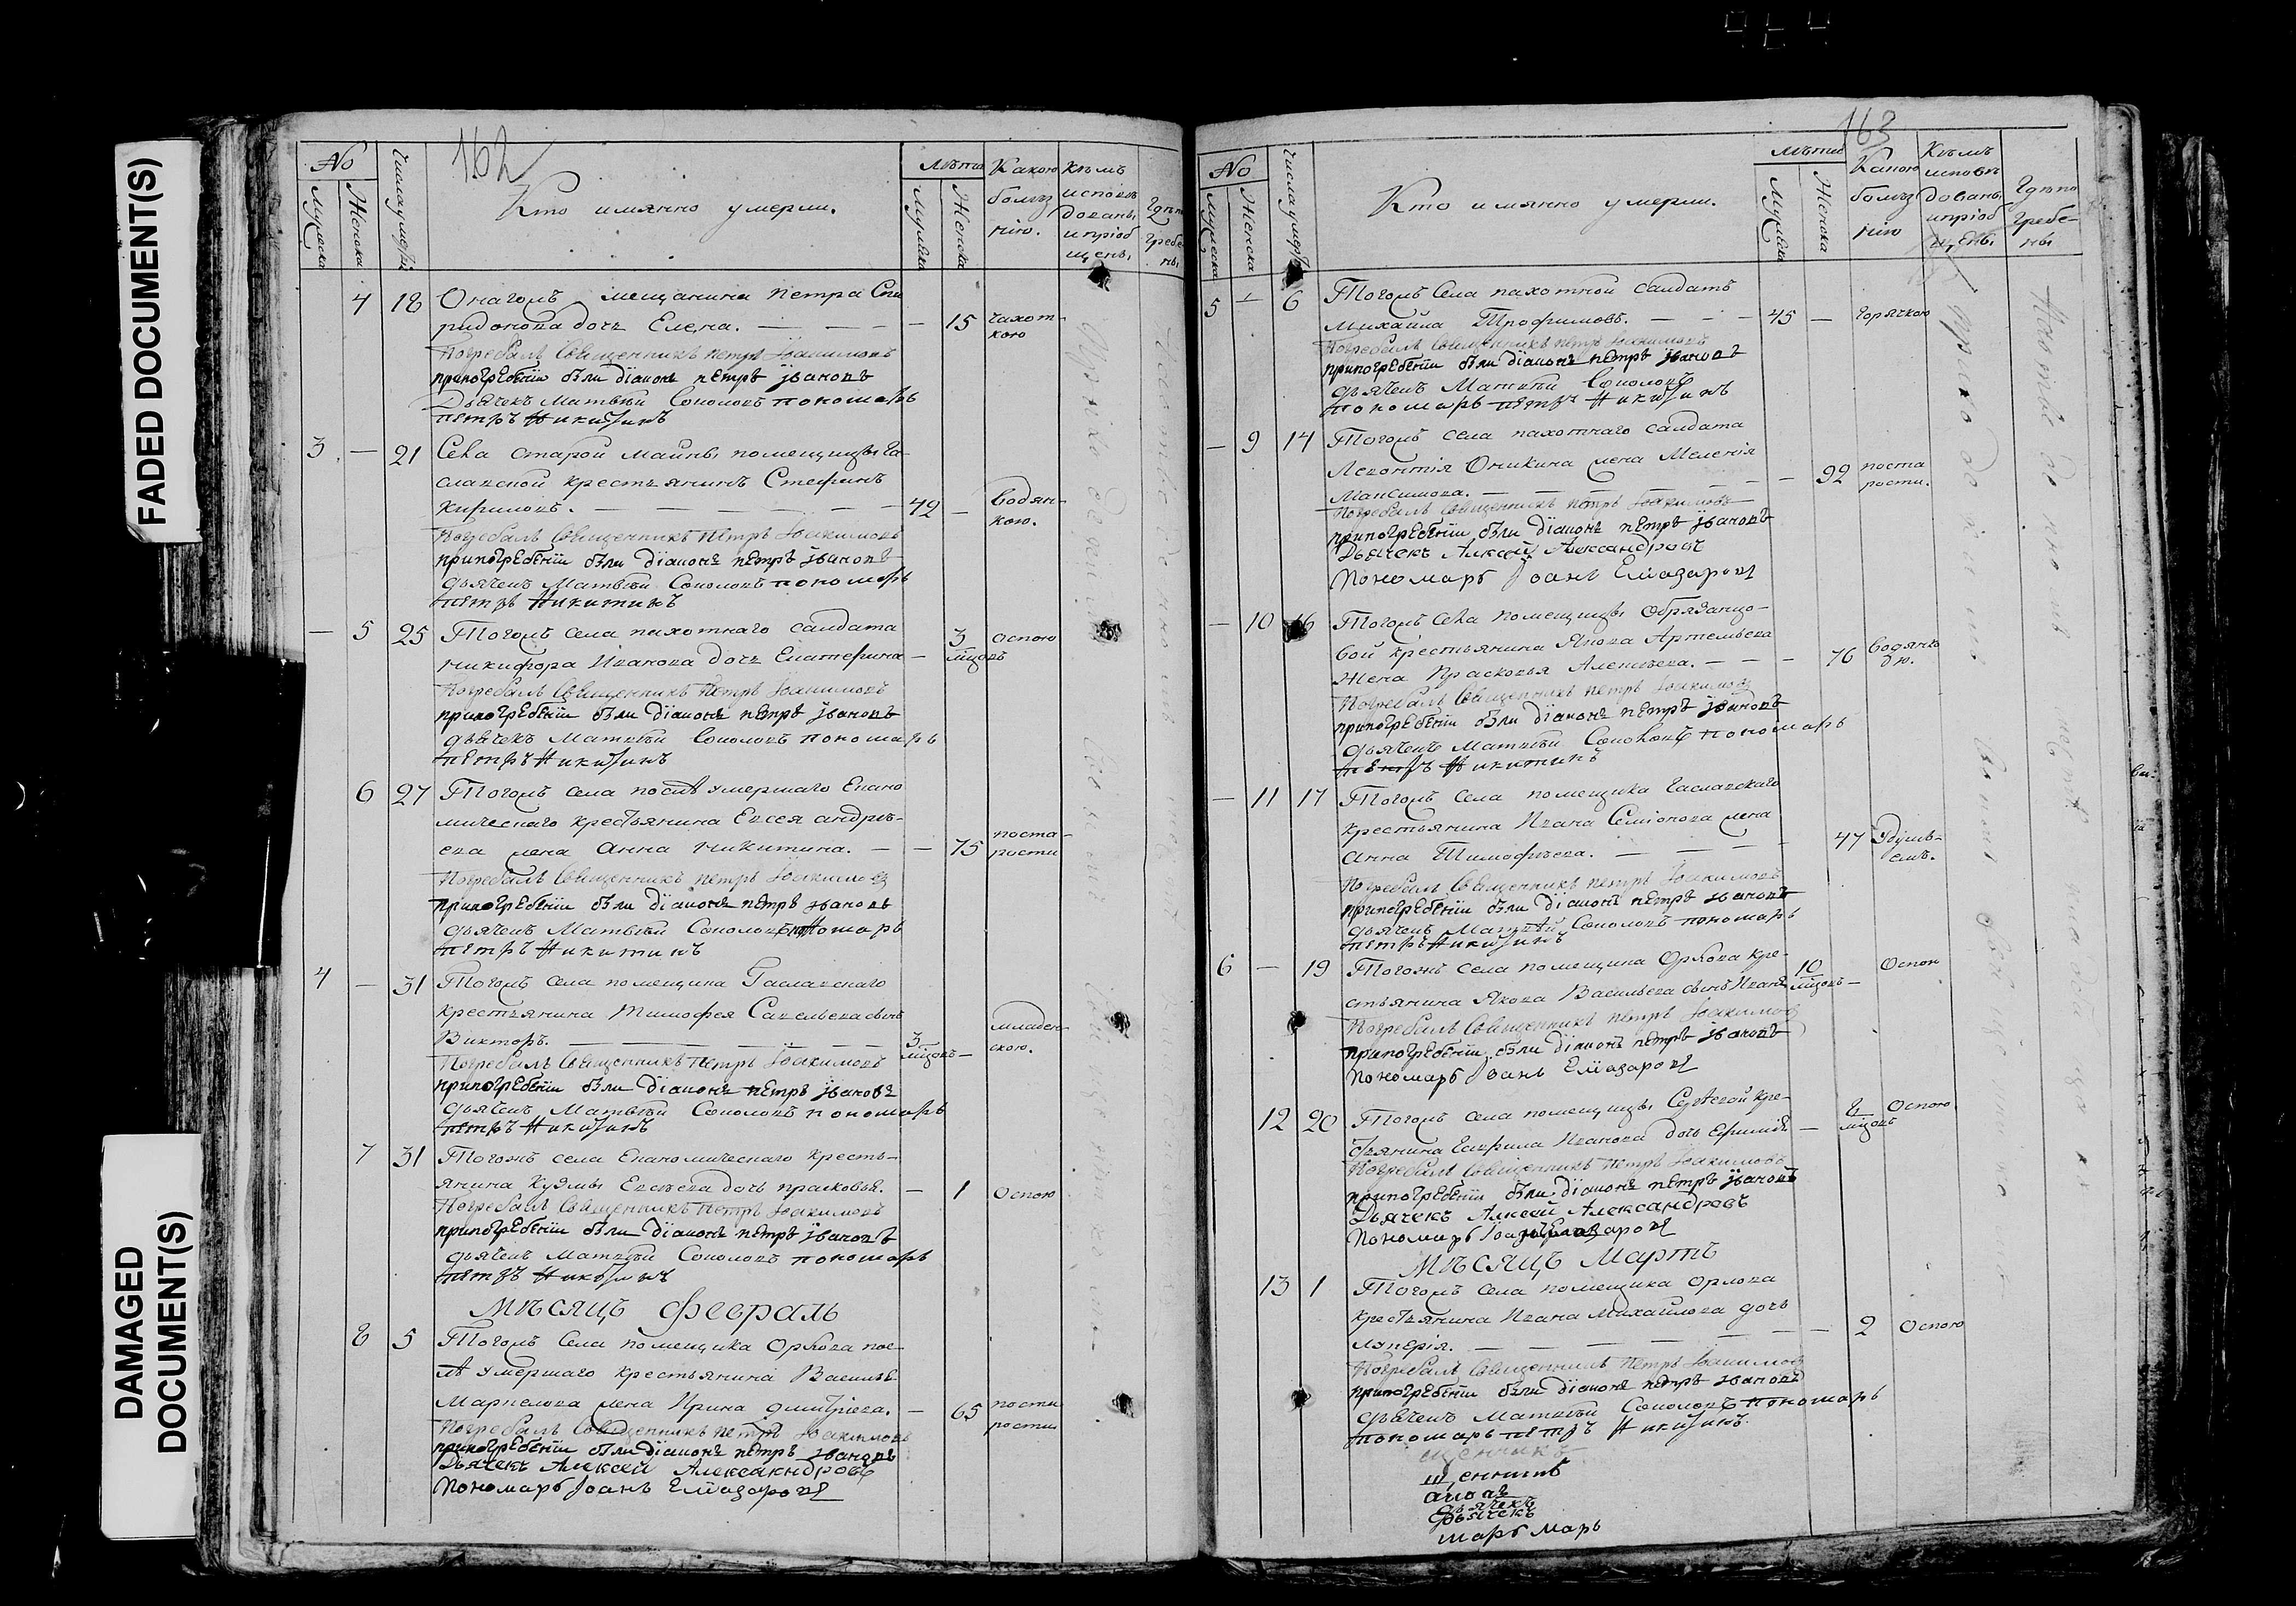 FADED DOCUMENT(S)
DAMAGED
DOCUMENT(S)
162
№
Мужеска
Женска
Кто имянно умерли.
Лѣта
Мужеска
Женска
Какою
болѣз
нію.
Кѣмъ
исповѣ
дованы
и пріоб
щены
Гдѣ по
гребе
ны
4 18 Онагожъ мещанина Петра Спи
ридонова дочь Елена. — 15 чахот-
кою
Погребалъ Священникъ Петръ Іоакимовъ
при погребеніи были діаконъ петръ јвановъ
Дьячекъ Матвѣй Соколовъ пономарь
петръ Никитинъ
3 — 21 Села Старой Майны помещицы Га-
славской крестьянинъ Стефанъ
Кириловъ. — 42 — Водян-
кою.
Погребалъ Священникъ Петръ Іоакимовъ
при погребеніи были діаконъ петръ јвановъ
дьячекъ Матвѣй Соколовъ пономарь
петръ Никитинъ
— 5 25 Тогожъ села пахотнаго салдата
Никифора Иванова дочь Екатерина — 3 мцовъ оспою
Погребалъ Священникъ Петръ Іоакимовъ
при погребеніи были діаконъ петръ јвановъ
дьячекъ Матвѣй Соколовъ пономарь
петръ Никитинъ
6 27 Тогожъ села послѣ умершаго Екано
мическаго крестьянина Евсея андрѣ-
ева жена Анна Никитина. — 75 поста-
рости
Погребалъ Священникъ Петръ Іоакимовъ
при погребеніи были діаконъ петръ јвановъ
дьячекъ Матвѣй Соколовъ пономарь
петръ Никитинъ
4 — 31 Тогожъ села помещика Гаславскаго
крестьянина Тимофея Савельева сынъ
Викторъ. — 3 мцовъ — младен-
скою.
Погребалъ Священникъ Петръ Іоакимовъ
при погребеніи были діаконъ петръ јвановъ
дьячекъ Матвѣй Соколовъ пономарь
петръ Никитинъ
7 31 Тогожъ села Еканомическаго кресть-
янина Кузмы Евсѣева дочь прасковья. — 1 Оспою
Погребалъ Священникъ Петръ Іоакимовъ
при погребеніи были діаконъ петръ јвановъ
дьячекъ Матвѣй Соколовъ пономарь
петръ Никитинъ
Мѣсяцъ февраль
8 5 Тогожъ Села помещика Орлова пос-
лѣ умершаго крестьянина Василья
Маркелова жена Ирина дмитріева. — 65 поста
рости
Погребалъ Священникъ Петръ Іоакимовъ
при погребеніи были діаконъ петръ јвановъ
Дьячекъ Алексей Александровъ
Пономарь Іоанъ Елиазаровъ
163
№
Мужеска
Женска
Кто имянно умерли.
Лѣта
Мужеска
Женска
Какою
болѣз
нію
Кѣмъ
исповѣ
дованы
и пріоб
щены
Гдѣ по
гребе-
ны
5 — 6 Тогожъ Села пахотной салдатъ
Михайла Трофимовъ. — 45 — горячкою
Погребалъ Священникъ Петръ Іоакимовъ
при погребеніи были діаконъ петръ јвановъ
дьячекъ Матвѣй Соколовъ
пономарь петръ Никитинъ
— 9 14 Тогожъ села пахотнаго салдата
Леонтія Оникина жена Меленія
Максимова. — 92 поста
рости.
Погребалъ Священникъ Петръ Іоакимовъ
при погребеніи были діаконъ петръ јвановъ
Дьячекъ Алексей Александровъ
Пономарь Іоанъ Елиазаровъ
— 10 16 Тогожъ села помещицы Обрязанцо-
вой крестьянина Якова Артемьева
жена Прасковья Алексѣева. — 76
Погребалъ Священникъ Петръ Іоакимовъ
при погребеніи были діаконъ петръ јвановъ
дьячекъ Матвѣй Соколовъ пономарь
петръ Никитинъ
— 11 17 Тогожъ Села помещика Гаславскаго
крестьянина Ивана Семіонова жена
Анна Тимофѣева. — 47
Погребалъ Священникъ Петръ Іоакимовъ
при погребеніи были діаконъ петръ јвановъ
дьячекъ Матвѣй Соколовъ пономарь
петръ Никитинъ
6 — 19 Тогожъ села помещика Орлова кре-
стьянина Якова Васильева сынъ Иванъ 10 мцовъ — Оспою
Погребалъ Священникъ Петръ Іоакимовъ
при погребеніи были діаконъ петръ јвановъ
Пономарь Іоанъ Елиазаровъ
12 20 Тогожъ села помещицы кре-
стьянина Гаврила Иванова дочь Ефимія — 8 мцовъ Оспою
Погребалъ Священникъ Петръ Іоакимовъ
при погребеніи были діаконъ петръ јвановъ
Дьячекъ Алексей Александровъ
Пономарь Іоанъ Елиазаровъ
Мѣсяцъ Мартъ
13 1 Тогожъ Села помещика орлова
крестьянина Ивана Михайлова дочь
Лукерія. — 2 Оспою
Погребалъ Священникъ Петръ Іоакимовъ
при погребеніи были діаконъ петръ јвановъ
дьячекъ Матвѣй Соколовъ пономарь
пономарь петръ Никитинъ
щенникъ
щенникъ
дьячекъ
дьячекъ
марь марь